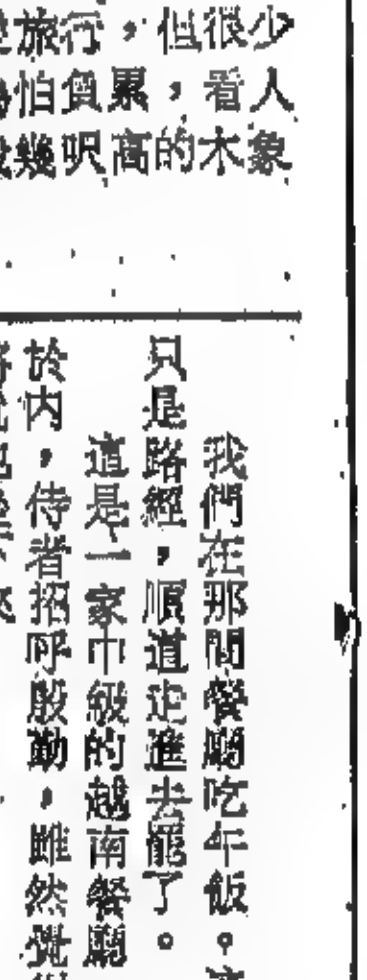 旅行，但很少
怕負累，看人
幾呎高的木象
我們在那間餐廳吃午飯。
只是路經，順道走進去罷了。
這是一家中級的越南餐廳
於內，侍者招呼殷勤，雖然覺